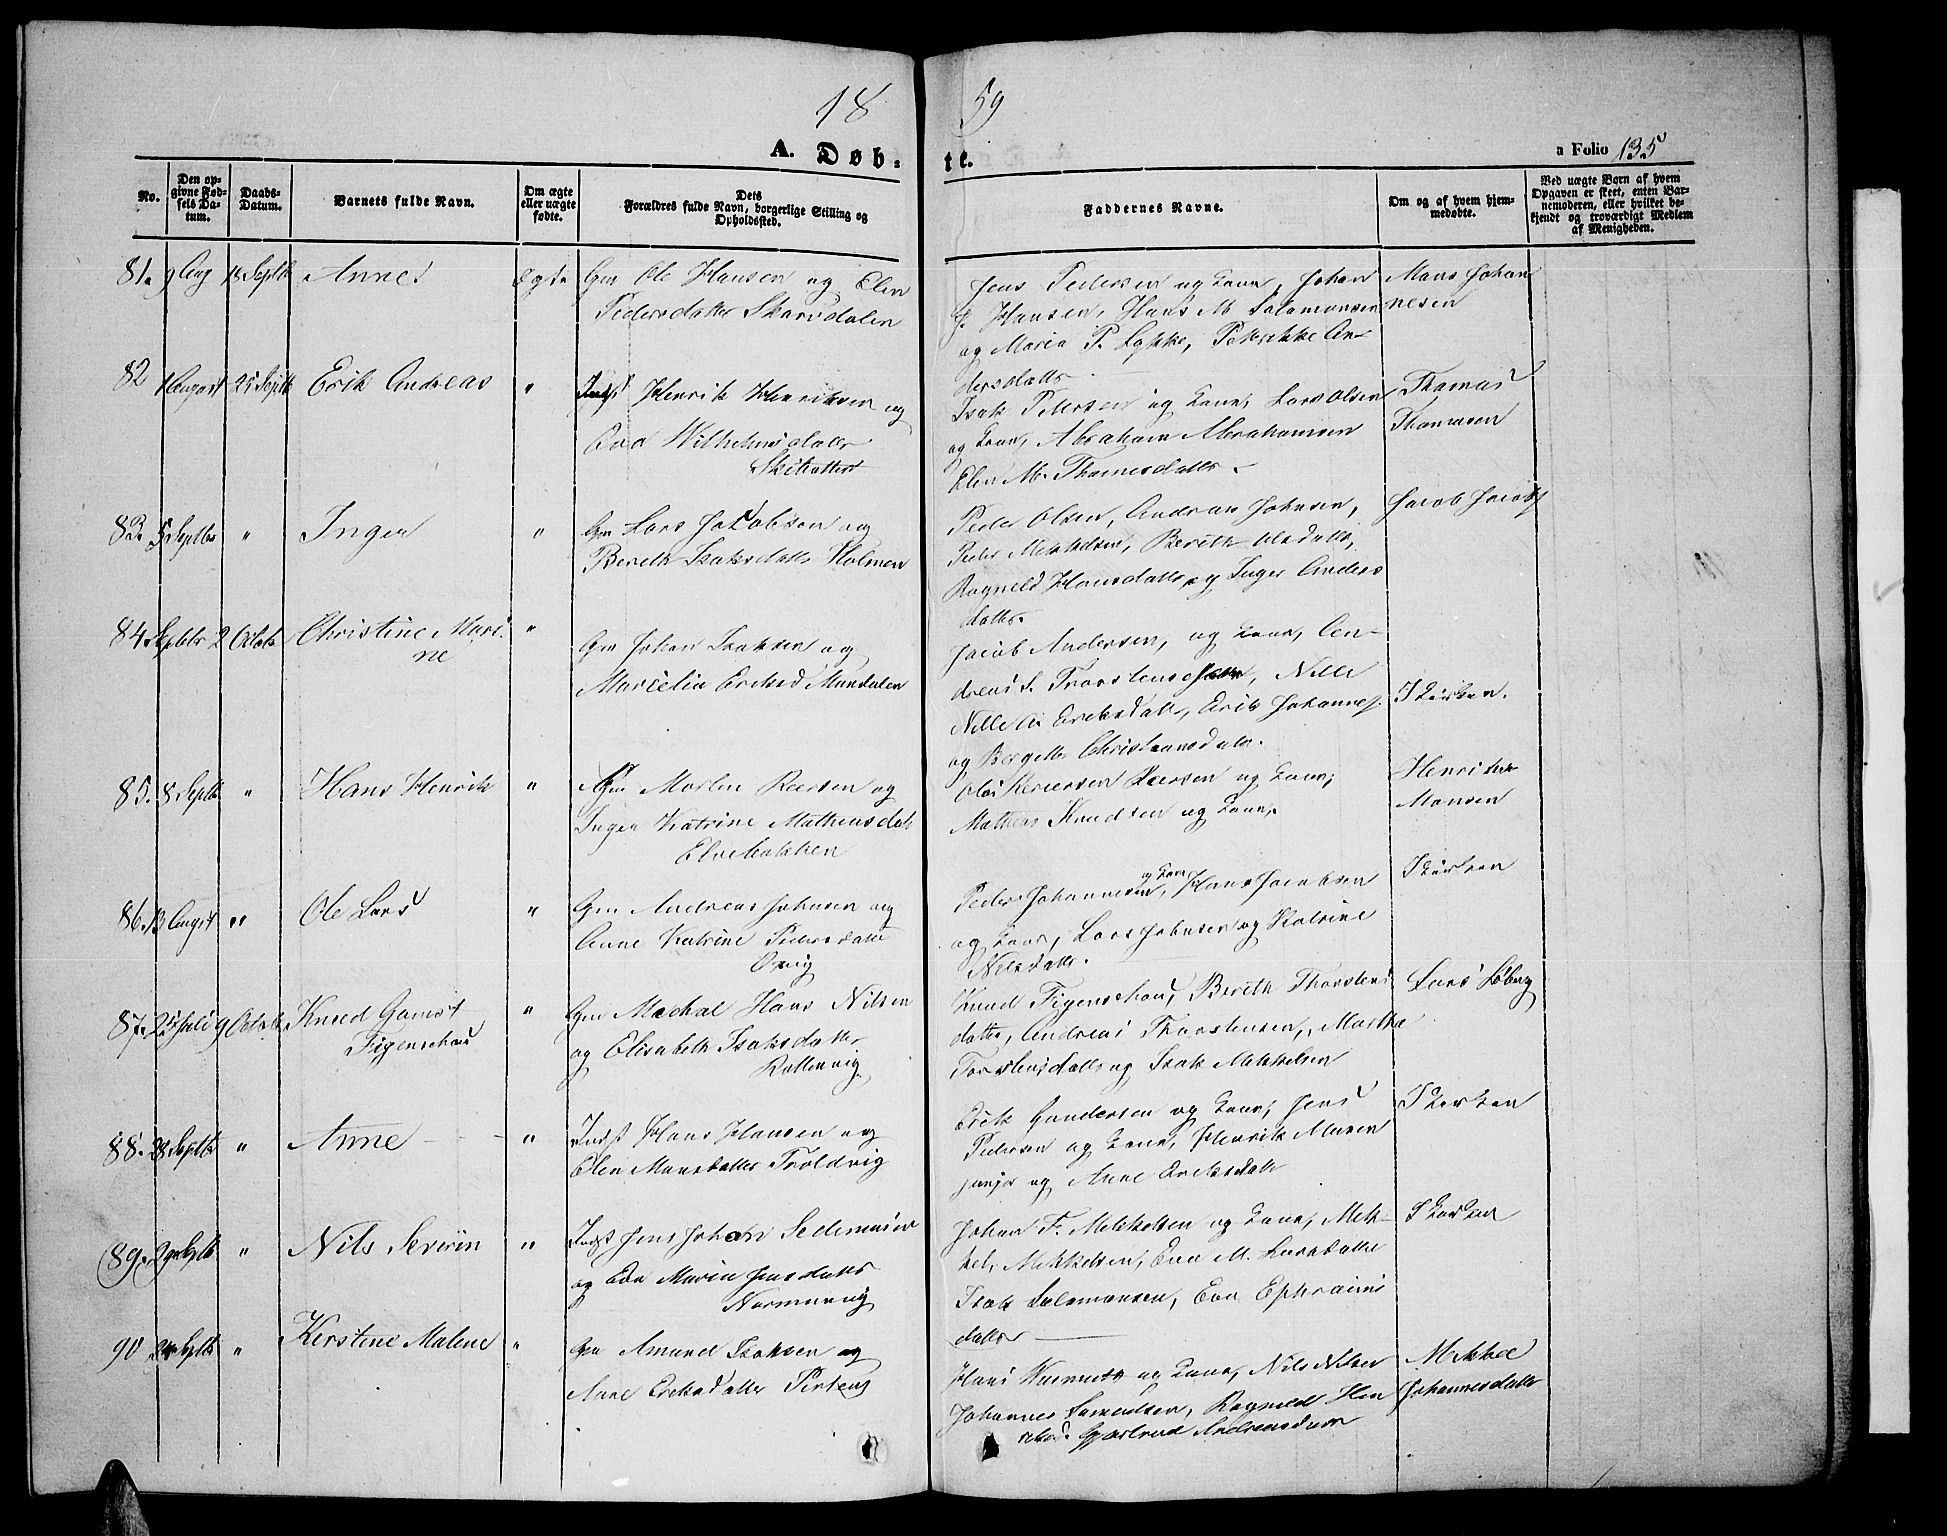 18 59
A. Døb- te.
a Folio 135
No.
Den op-
givne Fød-
sels Da-
tum.
Daabs-
Datum.
Barnets fulde Navn.
Om ægte
eller uægte
fødte.
Dets
Forældres fulde Navn, borgerlige Stilling og
Opholdssted.
Faddernes Navne.
Om og af hvem hjem-
medøbte.
Ved uægte Børn af hvem
Opgaven er skeet, enten Bar-
nemoderen, eller hvilket be-
kjendt og troværdigt Medlem
af Menigheden.
81. 9 Aug 18 Septbr Anne Ægte Gm Ole Hansen og Elen
Pedersdatter Skarvdalen
Jens Pedersen og Kone, Johan
J. Hansen, Hans M. Salamonsen
og Maria P. Lykke, Petrikke An-
dersdatter
Mons Johan
nesen
82 August 25 Septbr Erik Andreas " Indst Henrik Henriksen og
Eva Wilhelmsdatter
Skibotten
Isak Petersen og Kone, Lars Olsen
og Kone, Abraham Abrahamsen
Elen M. Thomesdatter
Thomas
Thomasen
83. 5 Septbr " Inger " Gm Lars Jacobsen og
Berith Isaksdatter Holmen
Peder Olsen, Andreas Johnsen,
Peder Mekkelsen, Berith Olsdatter,
Ragneld Hansdatter og Inger Anders
datter.
Jacob Jacobs
84 Septbr 2 Octobr Christine Mari-
ne " Gm Johan Isaksen og
Marcelia Eriksd Mandalen
Jacob Andersen, og Kone, An-
dreas S. Thorstensen, Nille
Nille A. Eriksdatter, Erik Johannes.
og Bergette Christiansdatr.
I Kirken.
85. 8 Septbr " Hans Henrik " Gm Morten Peersen og
Inger Katrine Mathiusdatr
Elvebakken
Ole Peersen og Kone,
Mathias Knudsen og Kone,
Henrik
Monsen
86. 13 August " Ole Lars " Gm Andreas Johnsen og
Anne Katrine Pedersdatter
Peder Johannesen og Kone, Hans Jacobsen
og Kone, Lars Johnsen og Katrine
Nilsdatter.
I Kirken
87. 25 Juli 9 Octobr Knud Gamst
Figenschou " Gm Mechal Hans Nilsen
og Elisabeth Isaksdatter
Rottenvig
Knud Figenschou, Berith Thorstens
datter, Andreas Thorstensen, Martha
Torstensdatter og Isak Mekkelsen
Lars Løberg
88. 28 Septbr " Anne " Indst Hans Hansen og
Elen Monsdatter Troldvig
Erik Gundersen og Kone, Jens
Pedersen og Kone, Henrik Monsen
junjor og Anne Eriksdatter
I Kirken
89. Septbr " Nils Severin " Indst Jens Johan
og Eva Maria Jensdatter
Normanvig
Johan F. Mekkelsen og Kone, Mek-
kel Mekkelsen, Eva M. Larsdatter
Isak Salamonsen, Eva Ephraims
datter
I Kirken
90 24 Septbr " Kerstine Malene " Gm Amund Isaksen og
Ane Eriksdatter
Hans og Kone, Nils Nilsen
Johannes Samuelsen, Ragneld Hen
riksd. Gjertrud Andreasdatter
Mekkel
Johannesdatter